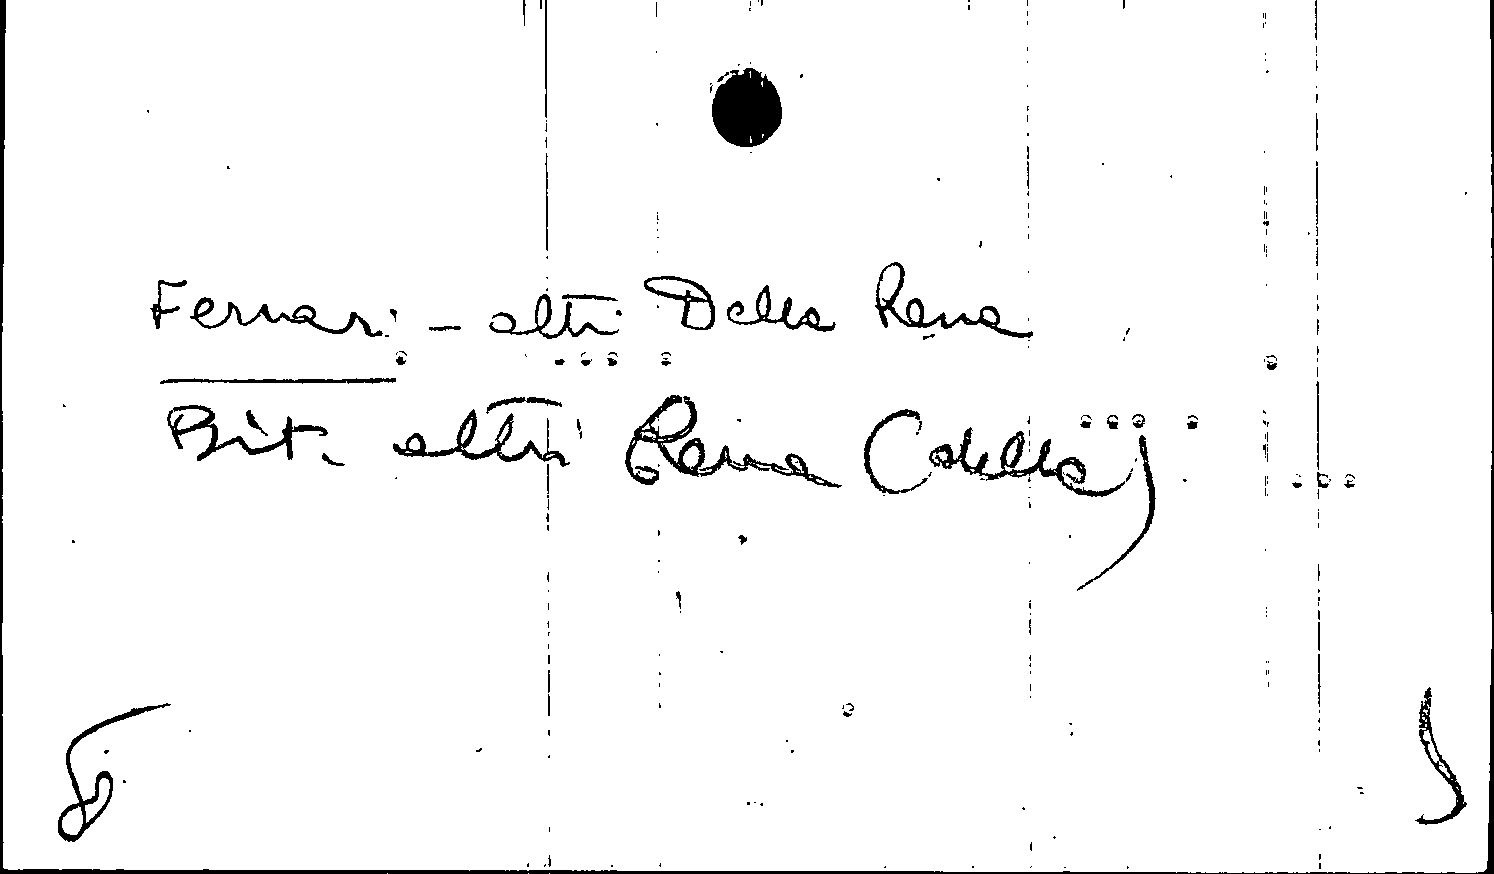 Ferrari - altri Della Rena
Bit. altri Rena (della)